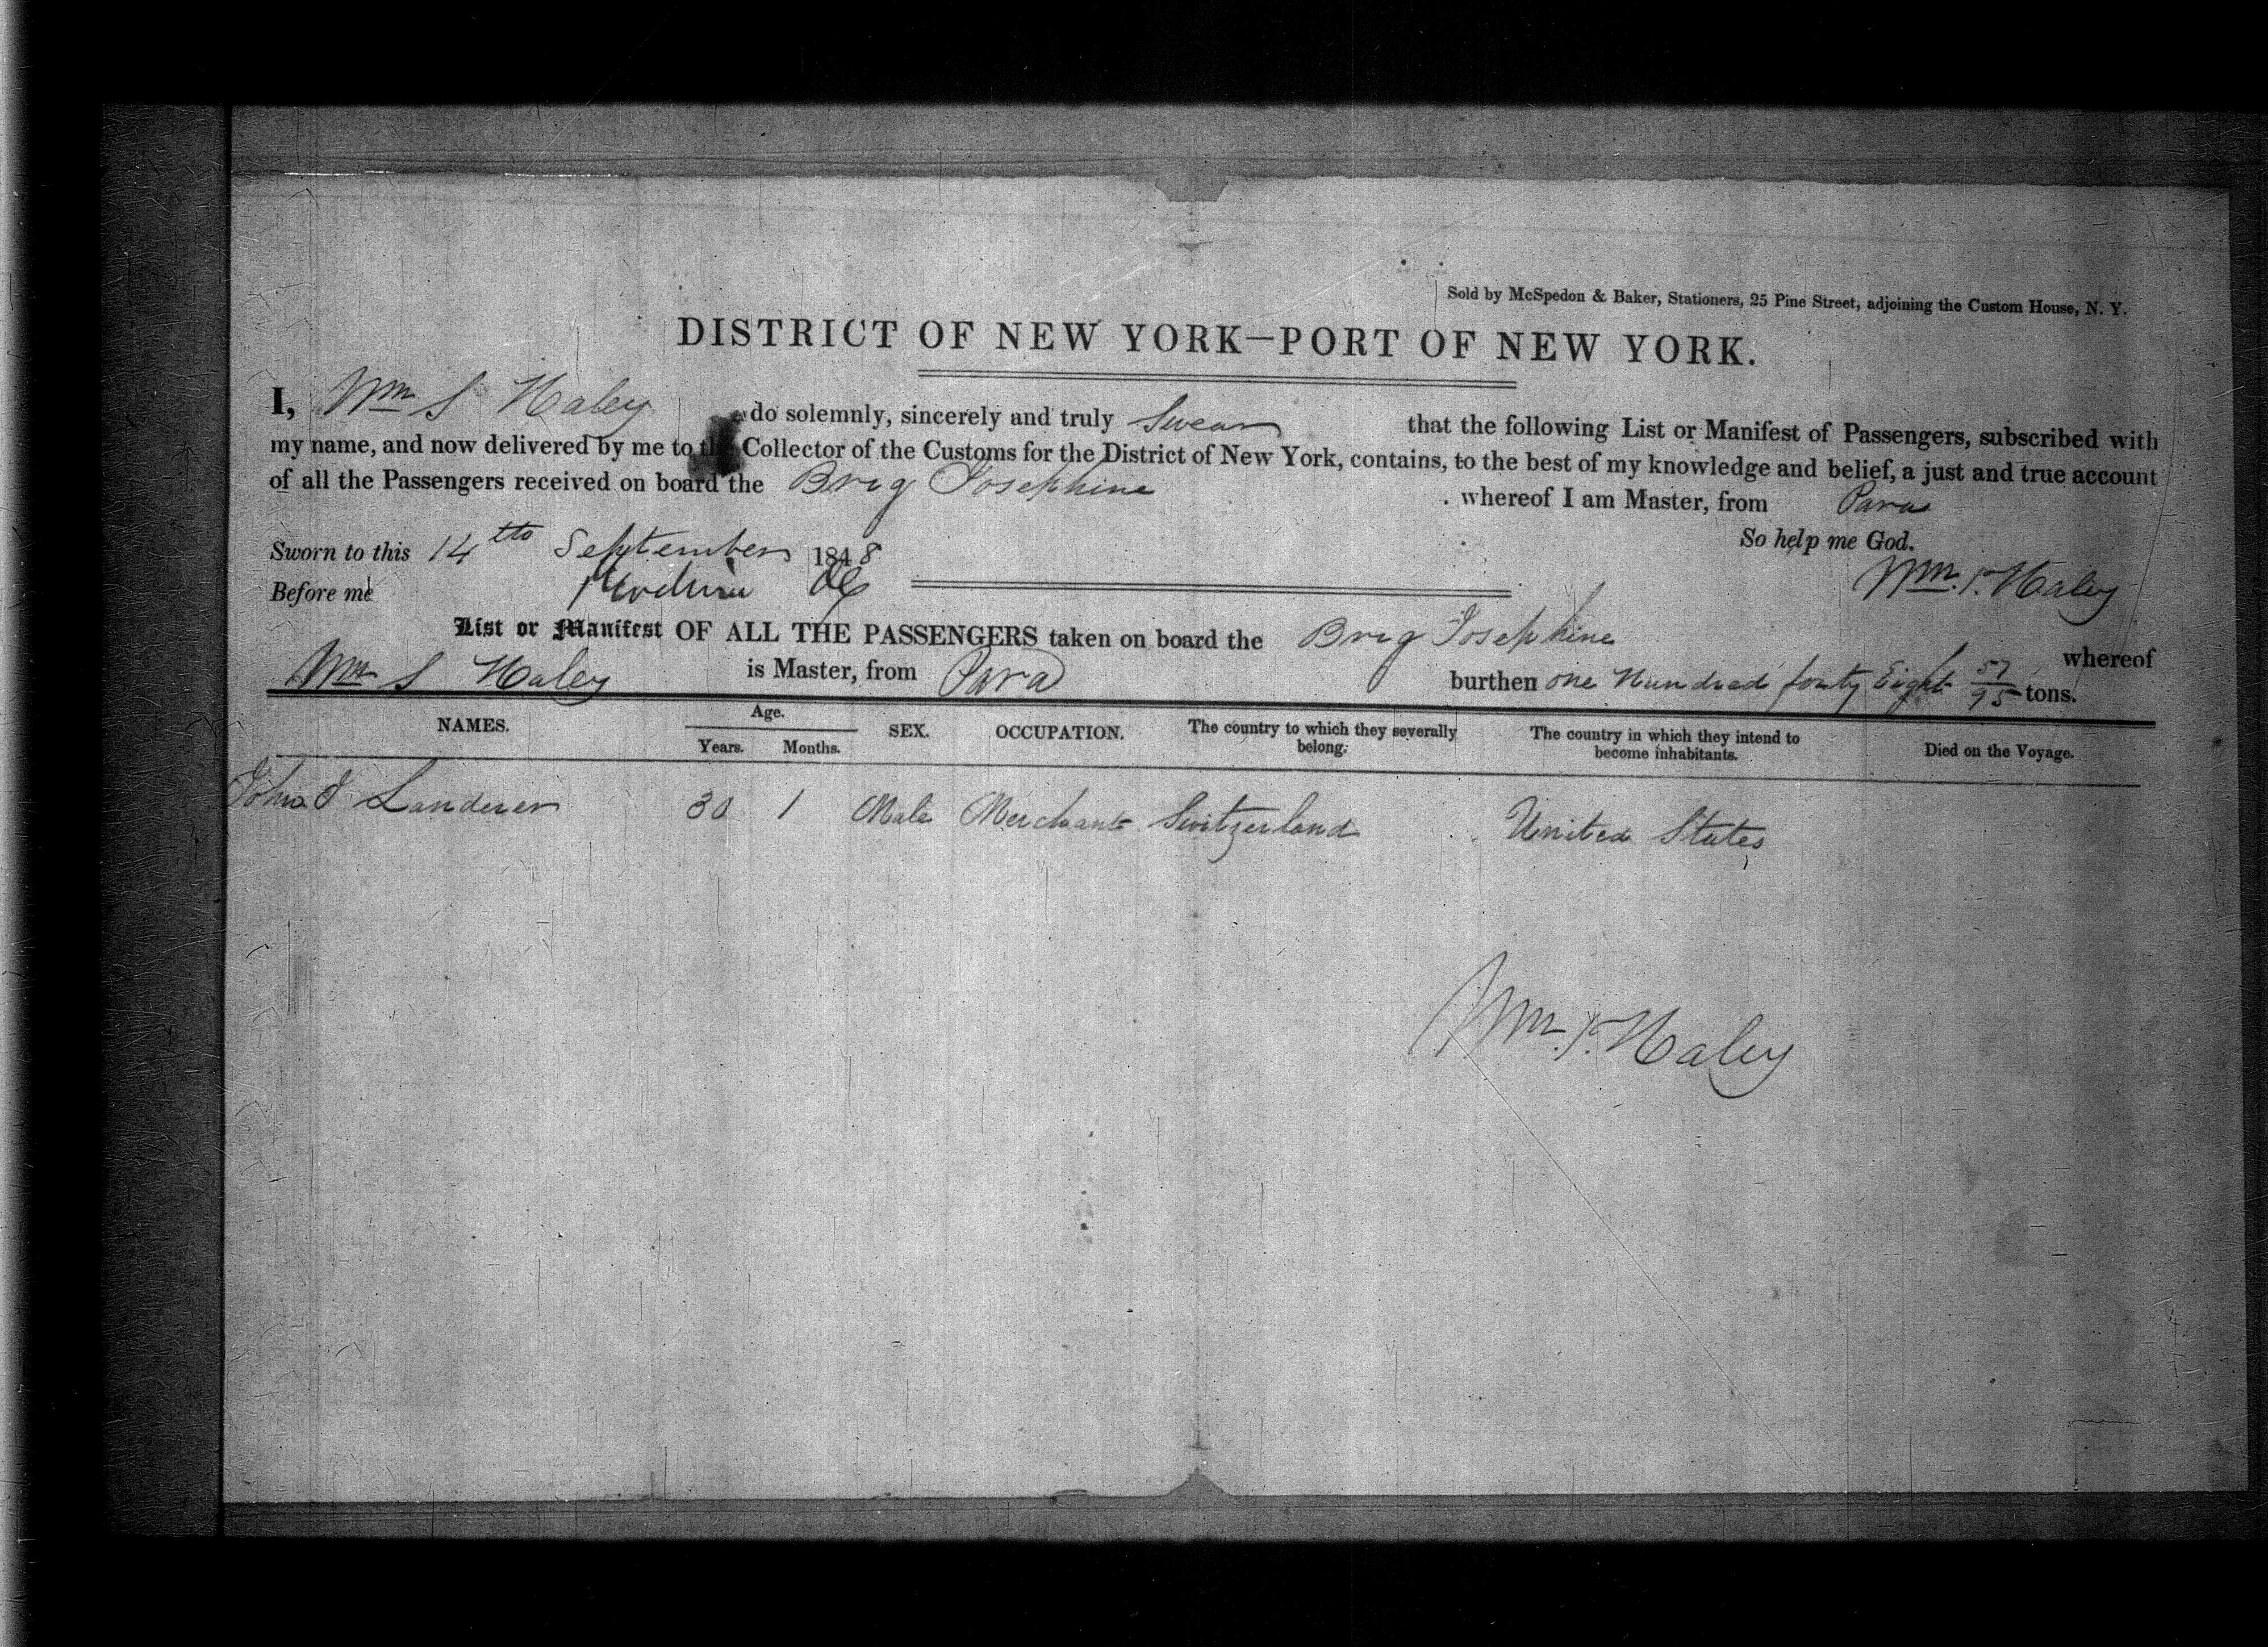 Sold by McSpedon & Baker, Stationers, 25 Pine Street, adjoining the Custom House, N. Y.
DISTRICT OF NEW YORK—PORT OF NEW YORK.
I, Wm S Haley do solemnly, sincerely and truly Swear that the following List or Manifest of Passengers, subscribed with
my name, and now delivered by me to the Collector of the Customs for the District of New York, contains, to the best of my knowledge and belief, a just and true account
of all the Passengers received on board the Brig Josephine whereof I am Master, from Para
So help me God.
Sworn to this 14th September 1848
Wm. S. Haley
Before me
List or Manifest OF ALL THE PASSENGERS taken on board the Brig Josephine whereof
Wm S Haley is Master, from Para burthen one Hundred forty Eight 57/95 tons.
NAMES. Age. SEX. OCCUPATION. The country to which they severally belong. The country in which they intend to become inhabitants. Died on the Voyage.
Years. Months.
John J Landerer 30 1 Male Merchant Switzerland United States
Wm. S. Haley